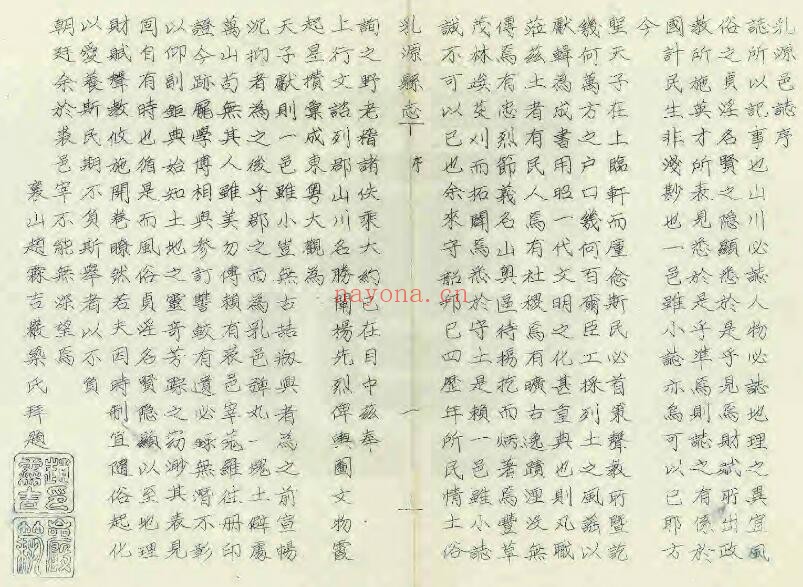 乳源邑誌序
誌所以記事也山川必誌人物必誌地理之異宣風
俗之貞淫名賢之隱顯悉於是乎見焉財賦所出政
教所施英才所表見悉於是乎準焉則誌之有係於
國計民生非淺尠也一邑雖小誌亦烏可以已耶方
今
聖天子在上臨軒而廑念斯民必首秉聲教所暨訖
幾何萬方之戶口幾何百爾臣工採列土之風謡以
獻輯為成書用昭一代文明之化甚皇典也則凡職
茲土者有民人焉有社稷焉有曠古逸蹟湮沒無
傳焉有忠烈節義名山奧區待揚扢而炳著焉豐草
茂林埃芟刈而拓闢焉悉於守土是賴一邑雖小誌
誠不可以已也余來守韶邦已四歷年所民情土俗
乳源縣志 序 一
詢之野老稽諸佚乘大約已在目中茲奉
上行文諮列郡山川名勝闡揚先烈俾輿圖文物霞
起星攢彙成東粵大觀為
天子獻則一邑雖小豈無古喆溯興者為之前宣暢
沉抑者為之後乎郡之西為乳邑碑丸一塊土僻處
萬山苟無其人雖美勿傳賴有裘邑宰蒞雅任册印
證今跡屬學博相與參訂讐鮫有遺必球無潛不彰
以仰副鉅典始知土地之靈奇芳踪之窈渺其表見
固自有時也循是而風俗貞淫名賢隱顯以至地理
財賦聲教攸施開巷暸然若夫因時制宜隨俗起化
以愛養斯民期不負斯舉者以不負
朝廷余於裘邑宰不能無深望焉
襄山趙霖吉嚴築氏拜題
nayona.cn